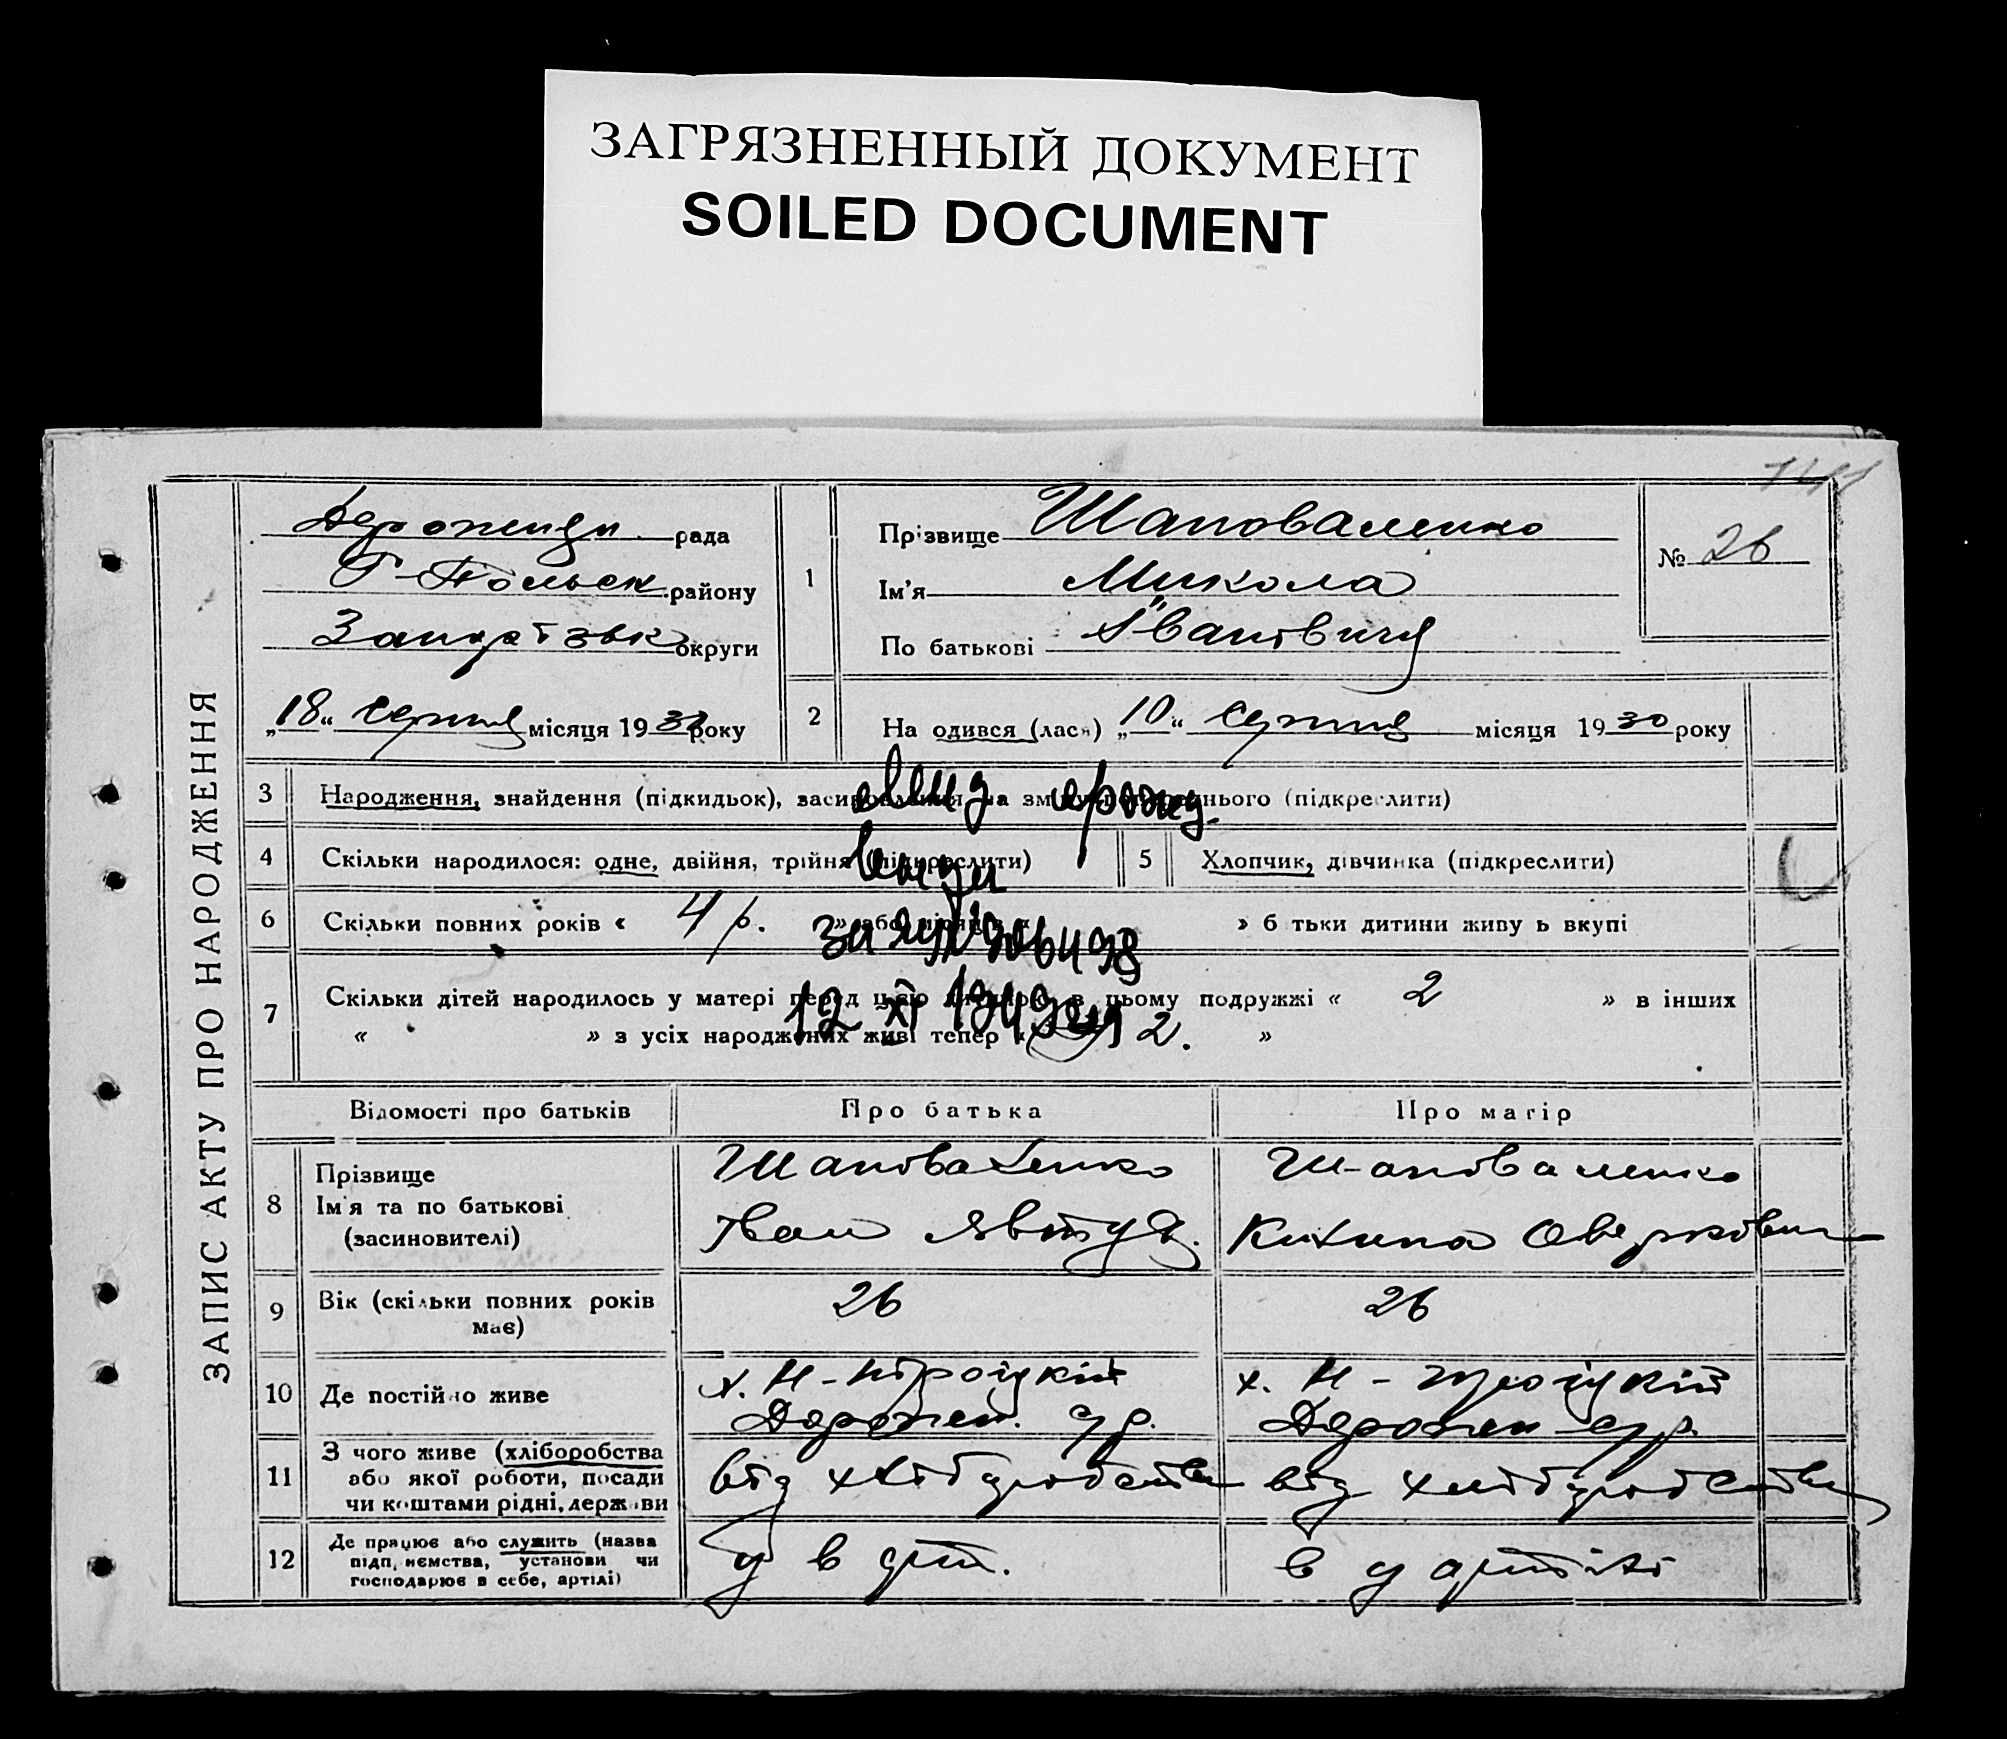 ЗАГРЯЗНЕННЫЙ ДОКУМЕНТ
SOILED DOCUMENT
ЗАПИС АКТУ ПРО НАРОДЖЕННЯ
рада
району
округи
„18“ серпня місяця 1930 року
1
Прізвище Шаповаленко
Ім'я Микола
По батькові Іванович
№ 26
2
На одився (лась) „10“ серпня місяця 1930 року
3 Народження, знайдення (підкидьок), засиновлення на зміну попереднього (підкреслити)
4 Скільки народилося: одне, двійня, трійня (підкреслити)
5 Хлопчик, дівчинка (підкреслити)
6 Скільки повних років « 4 р. » або місяців « » б тьки дитини живу ь вкупі
7 Скільки дітей народилось у матері перед цією дитиною в цьому подружжі « 2 » в інших
« » з усіх народжених живі тепер « 2. »
12 XI 1949
Відомості про батьків
Про батька
Про матір
8
Прізвище
Ім'я та по батькові
(засиновителі)
Шаповаленко
Іван
Шаповаленко
Килина Оверковна
9 Вік (скільки повних років
має)
26
26
10 Де постійно живе
х. Н-Троїцкій
х. Н-Троїцкій
11
З чого живе (хліборобства
або якої роботи, посади
чи коштами рідні, держави
від хліборобства
від хліборобства
12
Де працює або служить (назва
підп, иємства, установи чи
господарює в себе, артілі)
у в арт.
в у артілі